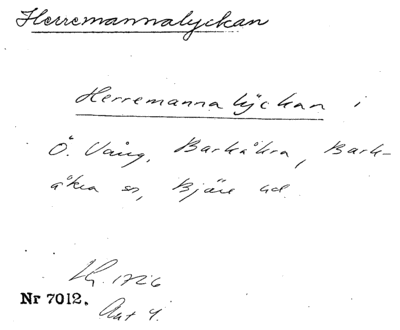 Herremannalyckan
Herremannalyckan i
Ö. Vång, Barkåkra, Bark-
åkra sn, Bjäre hd.
1726
Nr 7012.
Akt 4.